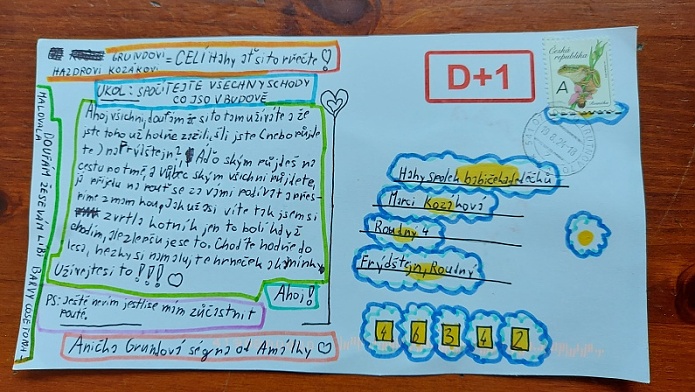 GRUNDOVI = CELÍ Hahy ať si to ryčetě
HAZDROVI KOZÁKOVI
ÚKOL: SPOČÍTEJTE VŠECHNY SCHODY
CO JSO V BUDOVĚ
Ahoj všichni, doufám že si to tam užíváte a že
jste toho už hodně zažili, šli jste (nebo půjdete
te) na Frýlštejn? A do ským půjdeš na
cestu na tmě, a vůbec ským všichni půjdete,
já přijdu na pout se za vámi podívat a přes
mě z mam houpačku asi víte tak jsem si
zvrtla kotník jen to bolí když
chodím, ale zlepčuje se to. Chodte hodně do
lesa, hezky si namalujte hrneček a kamínky
Užívejtesi to!!!
Ahoj!
PS: ještě nevím jestli se mím zůčastnit
poutě.
Anička Grundová ségra od Amálky
MALOVALA DOUFÁM ŽE SE VÁM LÍBÍ BARVY COSE TOMU
D+1
Česká
republika
A
Hahy spolek babičeka dědečků
Marci Kozáková
Roudný 4
Frýdštejn, Roudný
4 6 3 4 2